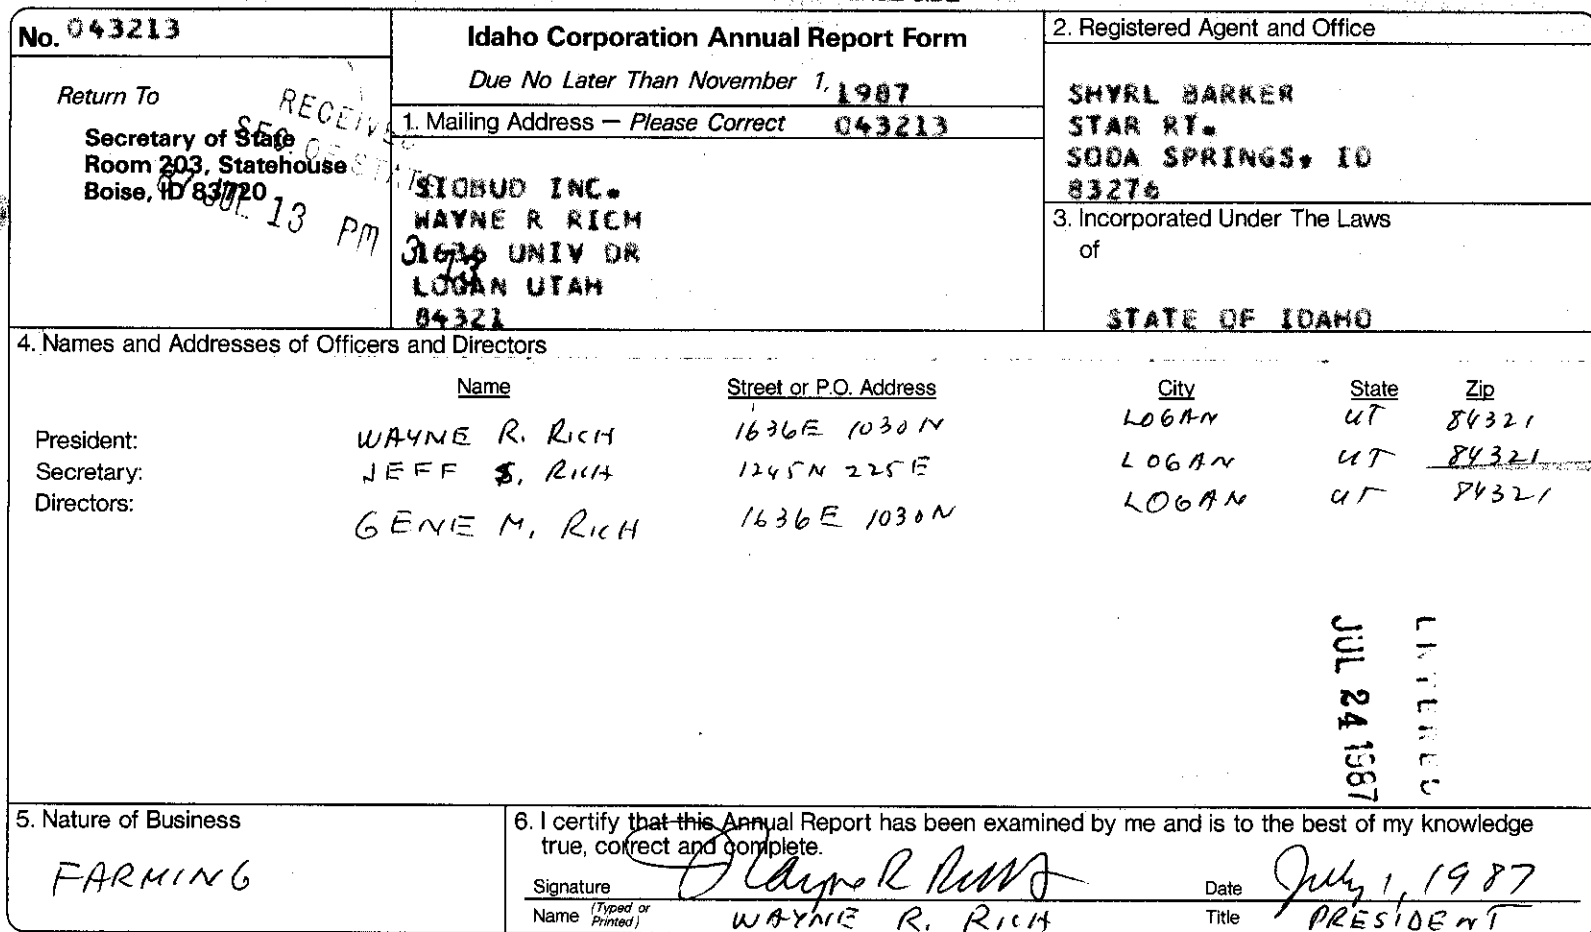 No. 043213
Return To
Secretary of State
Room 203, Statehouse
Boise, ID 83720
RECEIVED
SEC. OF STATE
87 JUL 13 PM 3
Idaho Corporation Annual Report Form
Due No Later Than November 1, 1987
1. Mailing Address — Please Correct 043213
SIOBUD INC.
WAYNE R RICH
1636 UNIV DR
LOGAN UTAH
84321
2. Registered Agent and Office
SHYRL BARKER
STAR RT.
SODA SPRINGS, ID
83276
3. Incorporated Under The Laws
of
STATE OF IDAHO
4. Names and Addresses of Officers and Directors
Name Street or P.O. Address City State Zip
President: WAYNE R. RICH 1636E 1030N LOGAN UT 84321
Secretary: JEFF S. RICH 1245N 225E LOGAN UT 84321
Directors:
GENE M. RICH 1636E 1030N LOGAN UT 84321
ENTERED
JUL 24 1987
5. Nature of Business
FARMING
6. I certify that this Annual Report has been examined by me and is to the best of my knowledge
true, correct and complete.
Signature Wayne R Rich Date July 1, 1987
Name (Typed or Printed) WAYNE R. RICH Title PRESIDENT